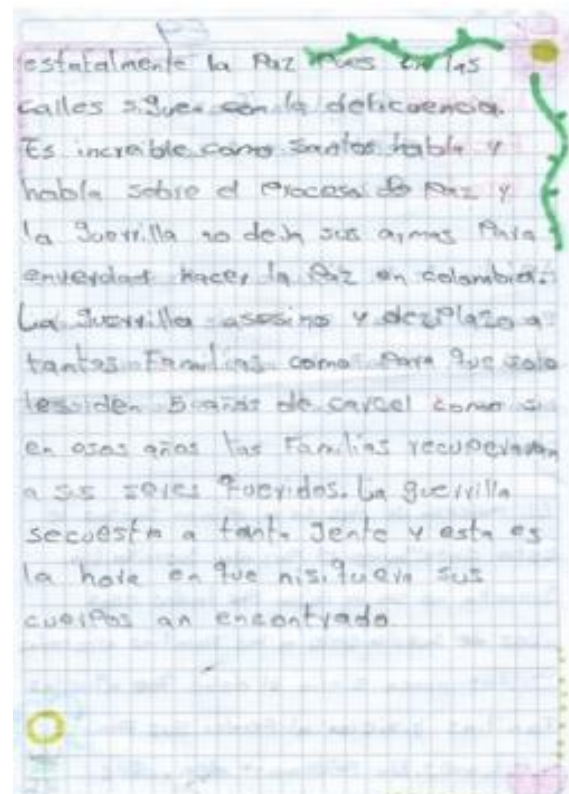 estatalmente la Paz Pues en las
calles siguen con la delicuencia.
Es increible como santos habla y
habla sobre el Proceso de Paz y
la guerrilla no deja sus armas Para
enverdad hacer la Paz en colombia.
La guerrilla asesino y dezPlazo a
tantas Familias como Para que solo
les den 5 años de carcel como si
en esos años las Familias recuperaran
a sus seres queridos. La guerrilla
secuestra a tanta gente y esta es
la hora en que nisiquera sus
cuerPos an encontrado